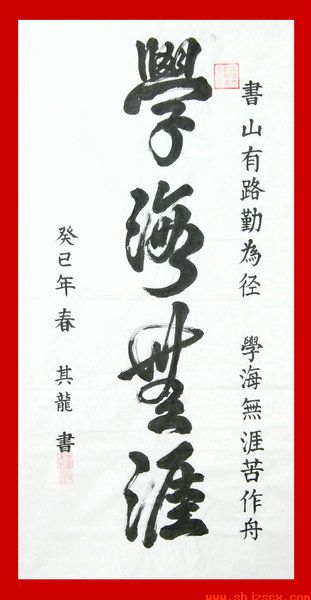 書山有路勤為径 學海無涯苦作舟
學海無涯
癸巳年春 其龍 書
www.shjzscx.com